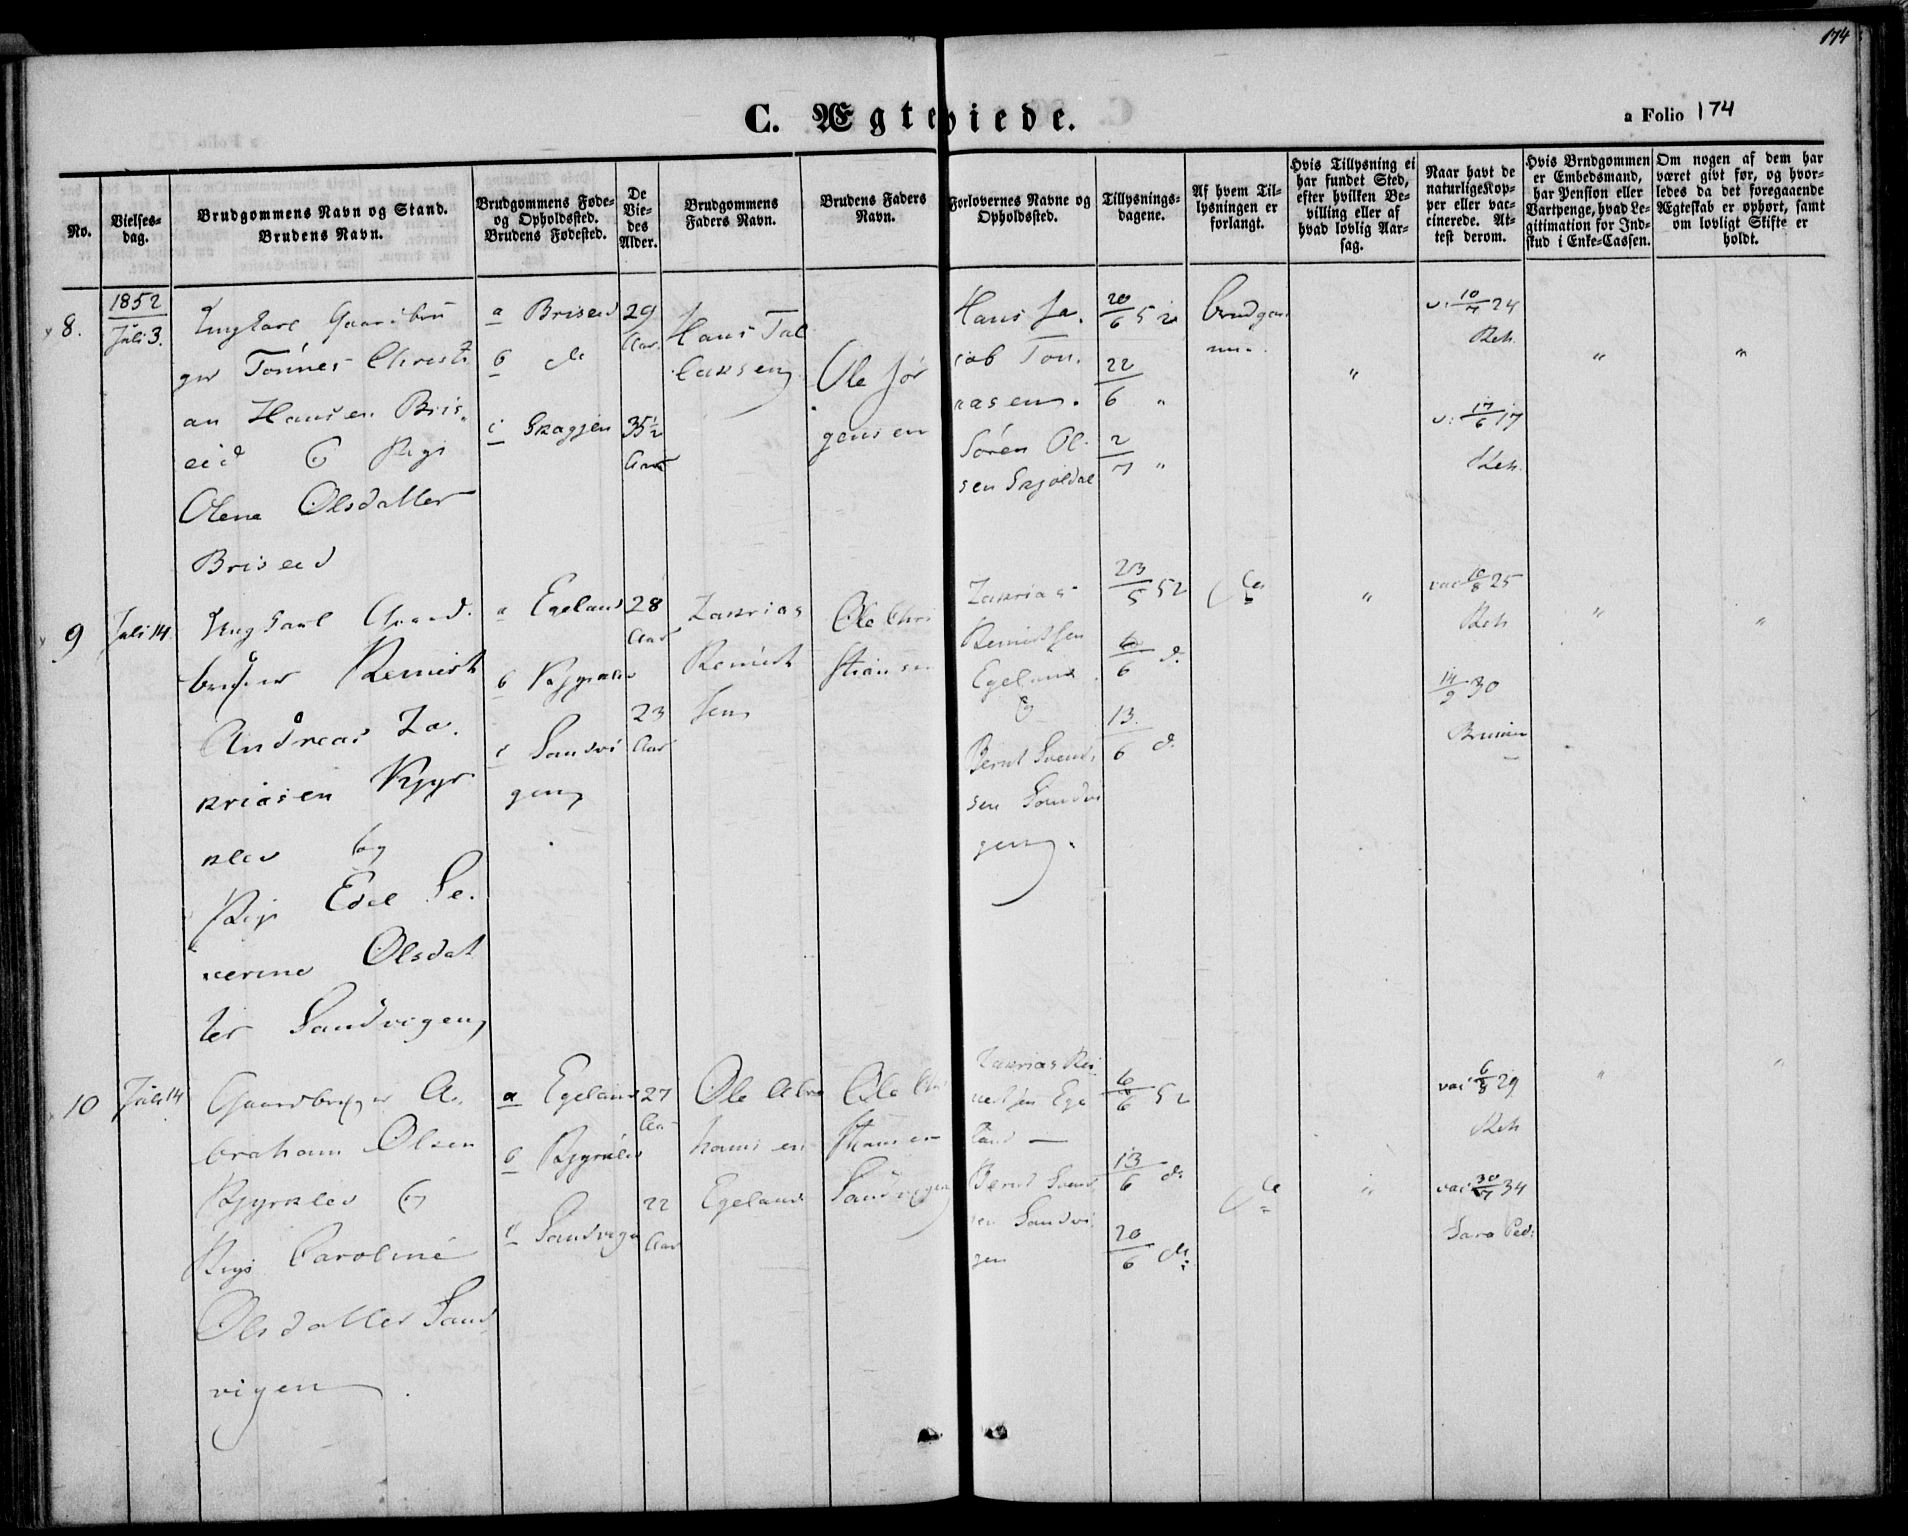 174
C. Ægteviede.
a Folio 174
No.
Vielses-
dag.
Brudgommens Navn og Stand.
Brudens Navn.
Brudgommens Føde-
og Opholdssted.
Brudens Fødested.
De
Vie-
des
Alder.
Brudgommens
Faders Navn.
Brudens Faders
Navn.
Forlovernes Navne og
Opholdssted.
Tillysnings-
dagene.
Af hvem Til-
lysningen er
forlangt.
Hvis Tillysning ei
har fundet Sted,
efter hvilken Be-
villing eller af
hvad lovlig Aar-
sag.
Naar havt de
naturlige Kop-
per eller vac-
cinerede. At-
test derom.
Hvis Brudgommen
er Embedsmand,
har Pension eller
Vartpenge, hvad Le-
gitimation for Ind-
skud i Enke-Cassen.
Om nogen af dem har
været givt før, og hvor-
ledes da det foregaaende
Ægteskab er ophørt, samt
om lovligt Skifte er
holdt.
8.
1852
Juli 3.
Ungkarl Gaardbru
ger Tønnes Christi
an Hansen Bris
eid & Pige
Olene Olsdatter
Briseid
a Briseid
b do
c Skaggen
29
Aar
35½
Aar
Hans Tal
laksen
Ole Jør
gensen
Hans Ja.
cob Tøn.
nasen.
Søren Ol.
sen Skjoldal
20/6 52
22/6 "
2/7 "
Brudgom
men.
"
v: 10/7 24
Reh.
v: 17/6 17
Reh.
"
"
9
Juli 14
Ungkarl Gaard.
bruger Reinert
Andreas Za.
kriasen Kjyr
klev og
Pige Edel Se.
verine Olsdat
ter Sandvigen
a Egeland
b Kjyrklev
c Sandvi
gen
28
Aar
23
Aar
Zakrias
Reinert
sen
Ole Chri
stiansen
Zakrias
Reinertsen
Egeland
&
Bernt Svend
sen Sandvi
gen.
23/5 52
6/6 d.
13/6 d.
do
"
vac 10/8 25
Reh
14/9 30
"
"
10
Juli 14
Gaardbruger A.
braham Olsen
Kjyrklev &
Pige Caroline
Olsdatter Sand
vigen
a Egeland
b Kjyrklev
c Sandvigen
27
Aar
22
Aar
Ole Abra
hamsen
Egeland
Ole Chri
stiansen
Sandvigen
Zakrias Rei
nertsen Ege
land
Bernt Svend
sen Sandvi
gen
6/6 52
13/6 d.
20/6 do
do
"
vac 6/8 29
Reh
vac 30/7 34
"
"